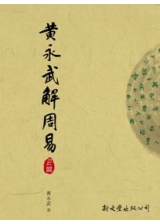 黄永武解周易
黃永武 著
新文豐出版公司